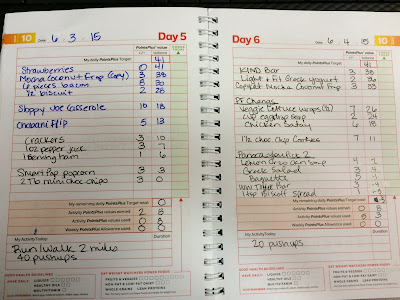 10 DATE: 6 . 3 . 15 Day 5
PointsPlus® value
My daily PointsPlus Target 41
Strawberries 0 41
Mocha Coconut Frap (copy) 3 38
6 pieces bacon 5 30
1/2 biscuit 2 28
Sloppy Joe Casserole 10 18
Chobani flip 5 13
Crackers 3 10
1oz pepper jack 3 7
1 banana 1 6
SmartPop popcorn 3 3
2 Tb mini choc chips 3 0
My remaining daily PointsPlus Target 0
Activity PointsPlus values earned 2 8
Activity PointsPlus values used 0 8
Weekly PointsPlus Allowance used 0 0
My Activity Today: Duration
Run/walk 2 miles
40 pushups
GOOD HEALTH GUIDELINES
EAT WEIGHT WATCHERS POWER FOODS
10 DATE: 6 . 4 . 15 Day 6
PointsPlus® value
My daily PointsPlus Target 41
KIND Bar
Light + Fit Greek yogurt 2 36
Copycat Mocha Coconut Frap 3 33
PF Changs
Veggie Lettuce Wraps 7 26
cup eggdrop soup 2 24
Chicken Satay 6 18
1/2 choc chip cookie 7 11
Lemon Orzo
Greek Salad
Baguette
1 tsp Biscoff Spread
My remaining daily PointsPlus Target
Activity PointsPlus values earned
Activity PointsPlus values used
Weekly PointsPlus Allowance used
My Activity Today: Duration
20 pushups
GOOD HEALTH GUIDELINES
EAT WEIGHT WATCHERS POWER FOODS